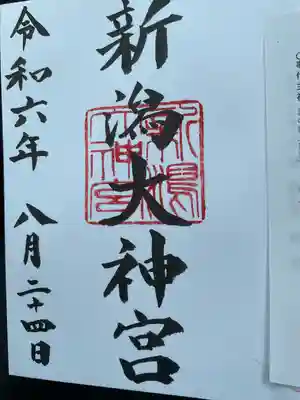 新潟大神宮
令和六年 八月二十四日